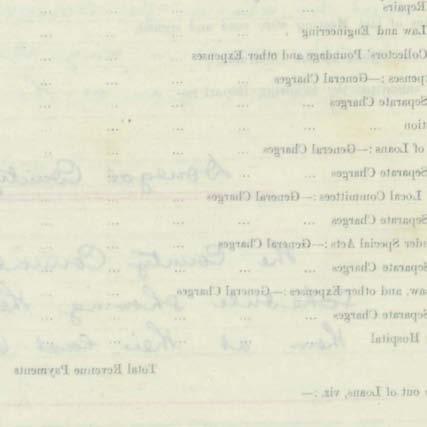 Repairs ... ... ... ...
Law and Engineering ... ... ... ...
Collectors' Poundage and other Expenses ... ...
penses :—General Charges ... ... ...
Separate Charges ... ... ... ...
tion ... ... ... ...
of Loans :—General Charges ... ... ...
Separate Charges ... ... ... ...
Donegal County
Local Committees :—General Charges ... ...
Separate Charges ... ... ... ...
nder Special Acts :—General Charges ... ...
the County
Separate Charges ... ... ... ...
aw, and other Expenses :—General Charges ... ...
showing the
Separate Charges ... ... ... ...
Hospital ... ... ... ...
them at their
Total Revenue Payments
out of Loans, viz. :—